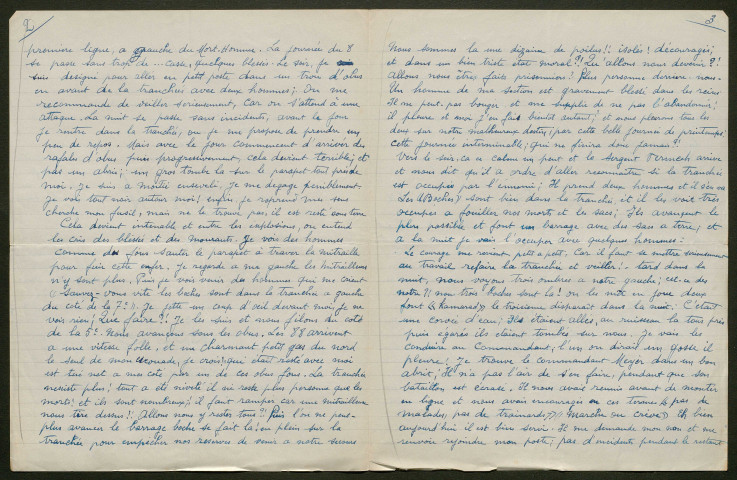 2
première ligne, a gauche du Mort-Homme. La journée du 8
se passe sans trop de ... casse, quelques blessés. Le soir, je
suis designé pour aller en petit poste dans un trou d'obus
en avant de la tranchée avec deux hommes; On me
recommande de veiller serieusement, car on s'attend à une
attaque. La nuit se passe sans incidents, avant le jour
je rentre dans la tranchée, ou je me propose de prendre un
peu de repos. Mais avec le jour commencent d'arriver des
rafales d'obus puis progressivement, cela devient terrible, et
pas un abri; un gros tombe la sur le parapet tout près de
moi. Je suis a moitié enseveli, Je me degage peniblement.
Je vois tout noir autour moi! enfin je reprends mes sens
cherche mon fusil, mais ne le trouve pas, il est resté sous terre
Cela devient intenable et entre les explosions, on entend
les cris des blessés et des mourants. Je vois des hommes
comme des fous sauter le parapet à traver la mitraille
pour fuir cette enfer. Je regarde a ma gauche les mitrailleurs
n'y sont plus. Puis je vois venir des hommes qui me crient
Sauvez-vous vite les boches sont dans la tranchée a gauche
du coté de la 7e. Je jette un coup d'œil devant moi, je ne
vois rien! Que faire?! Je les suis et nous filons du coté
de la 5e. Nous avançons sous les obus. Les 88 arrivent
a une vitesse folle. et un charmant petit gas du nord
le seul de mon escouade, je crois! qui était resté avec moi
est tué net a ma coté par un de ces obus fous. La tranchée
n'existe plus! tout a été nivelé il ne reste plus personne que les
morts! et ils sont nombreux; il faut ramper car une mitrailleuse
nous tire dessus! Allons nous y rester tous?! Puis l'on ne peut
plus avancer le barrage boche se fait là! en plein sur la
tranchée pour empêcher nos reserves de venir a notre secours
3
Nous sommes la une dizaine de poilus! isolés! découragés;
et dans un bien triste état moral?! Qu'allons nous devenir?!
Allons nous être faits prisonniers! Plus personne derrière nous.
Un homme de ma section est gravement blessé dans les reins
Il ne peut pas bouger et me supplie de ne pas l'abandonner!
il pleure et moi j'en fais bientôt autant; et nous pleurons tous les
deux sur notre malheureux destin, par cette belle journée de printemps!
cette journée interminable; qui ne finira donc jamais?!
Vers le soir ca se calme un peut et le Sergent arrive
et nous dit qu'il a ordre d'aller reconnaitre si la tranchée
est occupée par l'ennemi; Il prend deux hommes et il s'en va
Les (Boches) sont bien dans la tranchée et il les voit très
occupés a fouiller nos morts et les sacs; Ils avancent le
plus possible et font un barrage avec des sacs a terre; et
a la nuit je vais l'occuper avec quelques hommes.
Le courage me revient petit a petit. Car il faut se mettre serieusement
au travail refaire la tranchée et veiller! - tard dans la
nuit, nous voyons trois ombres a notre gauche; est-ce des
notre?! non trois boches sont la! on les met en joue deux
font (kamarad) le troisieme disparait dans la nuit. C'était
une corvée d'eau; Ils étaient allés, au ruisseau la tout près
puis egarés ils étaient tombés sur nous. Je vais les
conduire au Commandant, l'un on dirait un gosse il
pleure! Je trouve le commandant Meyer dans un bon
abri! Il n'a pas l'air de s'en faire, pendant que son
bataillon est écrasé. Il nous avait reunis avant de monter
en ligne et nous avait encouragés en ces termes (pas de
malades, pas de trainards, Marche ou crève) eh bien
aujourd'hui il est bien servi. Il me demande mon nom et me
renvoie rejoindre mon poste; pas d'incidents pendant le restant